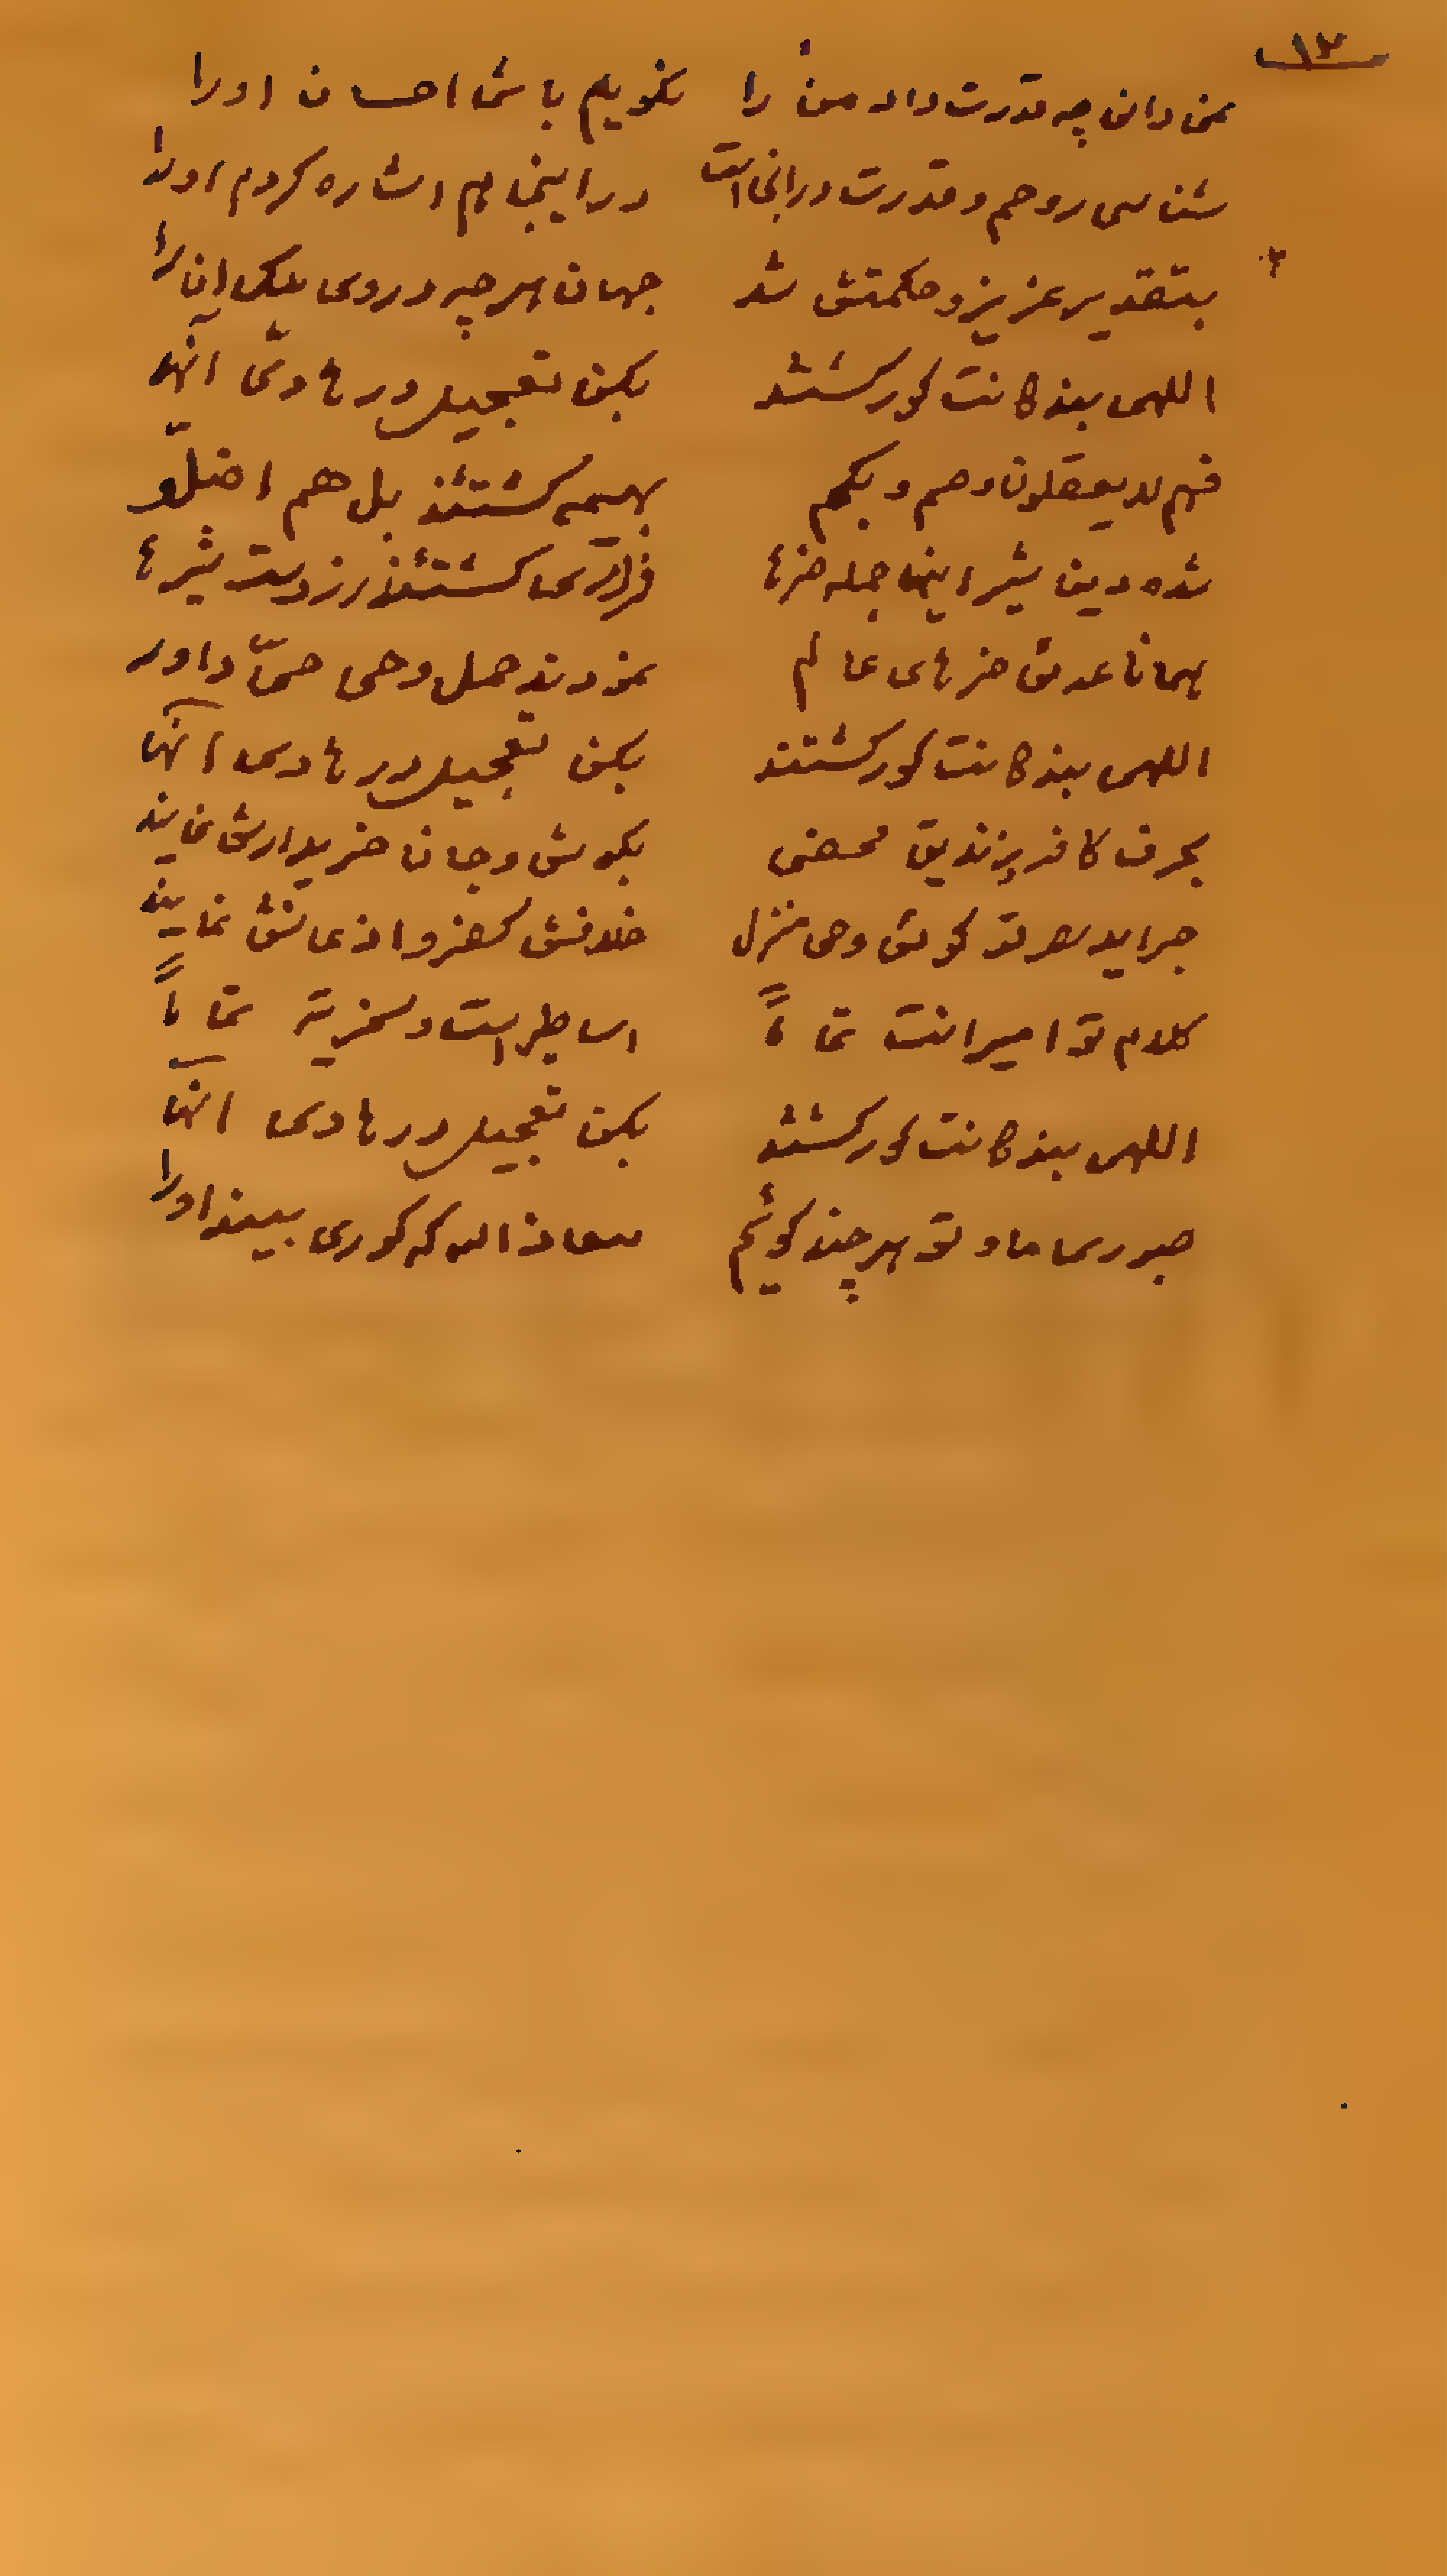 ١٣
نمی دانی چه قدرت داد من را نگویم باشی احسان او را
شناسی روحم و قدرت در اینجا است در اینجا هم اشاره کردم او را
بتقدیر عزیز و حکمتش شد جهان هر چه در روی یک آن را
٢
اللهی بندگانت کور گشتند بکن تعجیل در هادی آنها
فهم لا یعقلون و صم و بکم بهیمه گشتند بل هم اضلو
شده دین بشر اینها جمله خرها فراری گشتند از دست بشرها
همانا عدی خرهای عالم نمودند حمل وحی حی داور
اللهی بندگانت کور گشتند بکن تعجیل در هادی آنها
بحرف کافر زندیق محضی بگوش و جان خریدارش نمایند
جراید هر تو گوئی وحی منزل خلافش کفر و اذعانش نمایند
کلام تو امیرانت تماماً اساطیر است و سخریة تماماً
اللهی بندگانت کور گشتند بکن تعجیل در هادی آنها
صبوری ما و تو هر چند گوئیم معاذ الله که کوری بیند او را